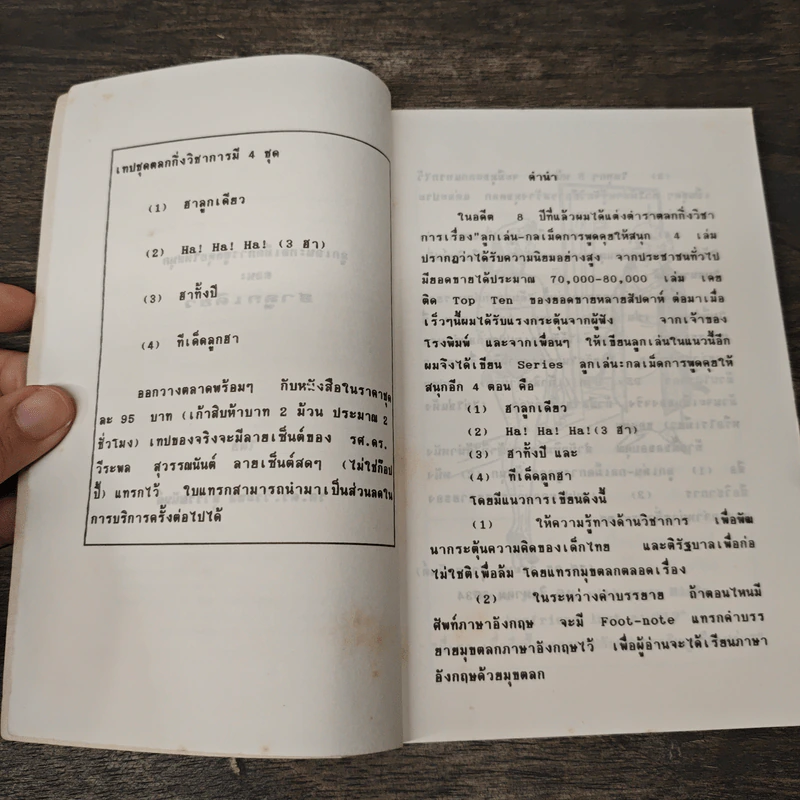 เทปชุดตลกกึ่งวิชาการมี 4 ชุด
(1) ฮาลูกเดียว
(2) Ha! Ha! Ha! (3 ฮา)
(3) ฮาทั้งปี
(4) ทีเด็ดลูกฮา
ออกวางตลาดพร้อมๆ กับหนังสือในราคาชุด
ละ 95 บาท (เก้าสิบห้าบาท 2 ม้วน ประมาณ 2
ชั่วโมง) เทปของจริงจะมีลายเซ็นต์ของ รศ.ดร.
วีระพล สุวรรณนันต์ ลายเซ็นต์สดๆ (ไม่ใช่ก๊อป
ปี้) แทรกไว้ ใบแทรกสามารถนำมาเป็นส่วนลดใน
การบริการครั้งต่อไปได้
คำนำ
ในอดีต 8 ปีที่แล้วผมได้แต่งตำราตลกกึ่งวิชา
การเรื่อง"ลูกเล่น-กลเม็ดการพูดคุยให้สนุก 4 เล่ม
ปรากฏว่าได้รับความนิยมอย่างสูง จากประชาชนทั่วไป
มียอดขายได้ประมาณ 70,000-80,000 เล่ม เคย
ติด Top Ten ของยอดขายหลายสัปดาห์ ต่อมาเมื่อ
เร็วๆนี้ผมได้รับแรงกระตุ้นจากผู้ฟัง จากเจ้าของ
โรงพิมพ์ และจากเพื่อนๆ ให้เขียนลูกเล่นในแนวนี้อีก
ผมจึงได้เขียน Series ลูกเล่น:กลเม็ดการพูดคุยให้
สนุกอีก 4 ตอน คือ
(1) ฮาลูกเดียว
(2) Ha! Ha! Ha!(3 ฮา)
(3) ฮาทั้งปี และ
(4) ทีเด็ดลูกฮา
โดยมีแนวการเขียนดังนี้
(1) ให้ความรู้ทางด้านวิชาการ เพื่อพัฒ
นากระตุ้นความคิดของเด็กไทย และติรัฐบาลเพื่อก่อ
ไม่ใช่ติเพื่อล้ม โดยแทรกมุขตลกตลอดเรื่อง
(2) ในระหว่างคำบรรยาย ถ้าตอนไหนมี
ศัพท์ภาษาอังกฤษ จะมี Foot-note แทรกคำบรร
ยายมุขตลกภาษาอังกฤษไว้ เพื่อผู้อ่านจะได้เรียนภาษา
อังกฤษด้วยมุขตลก